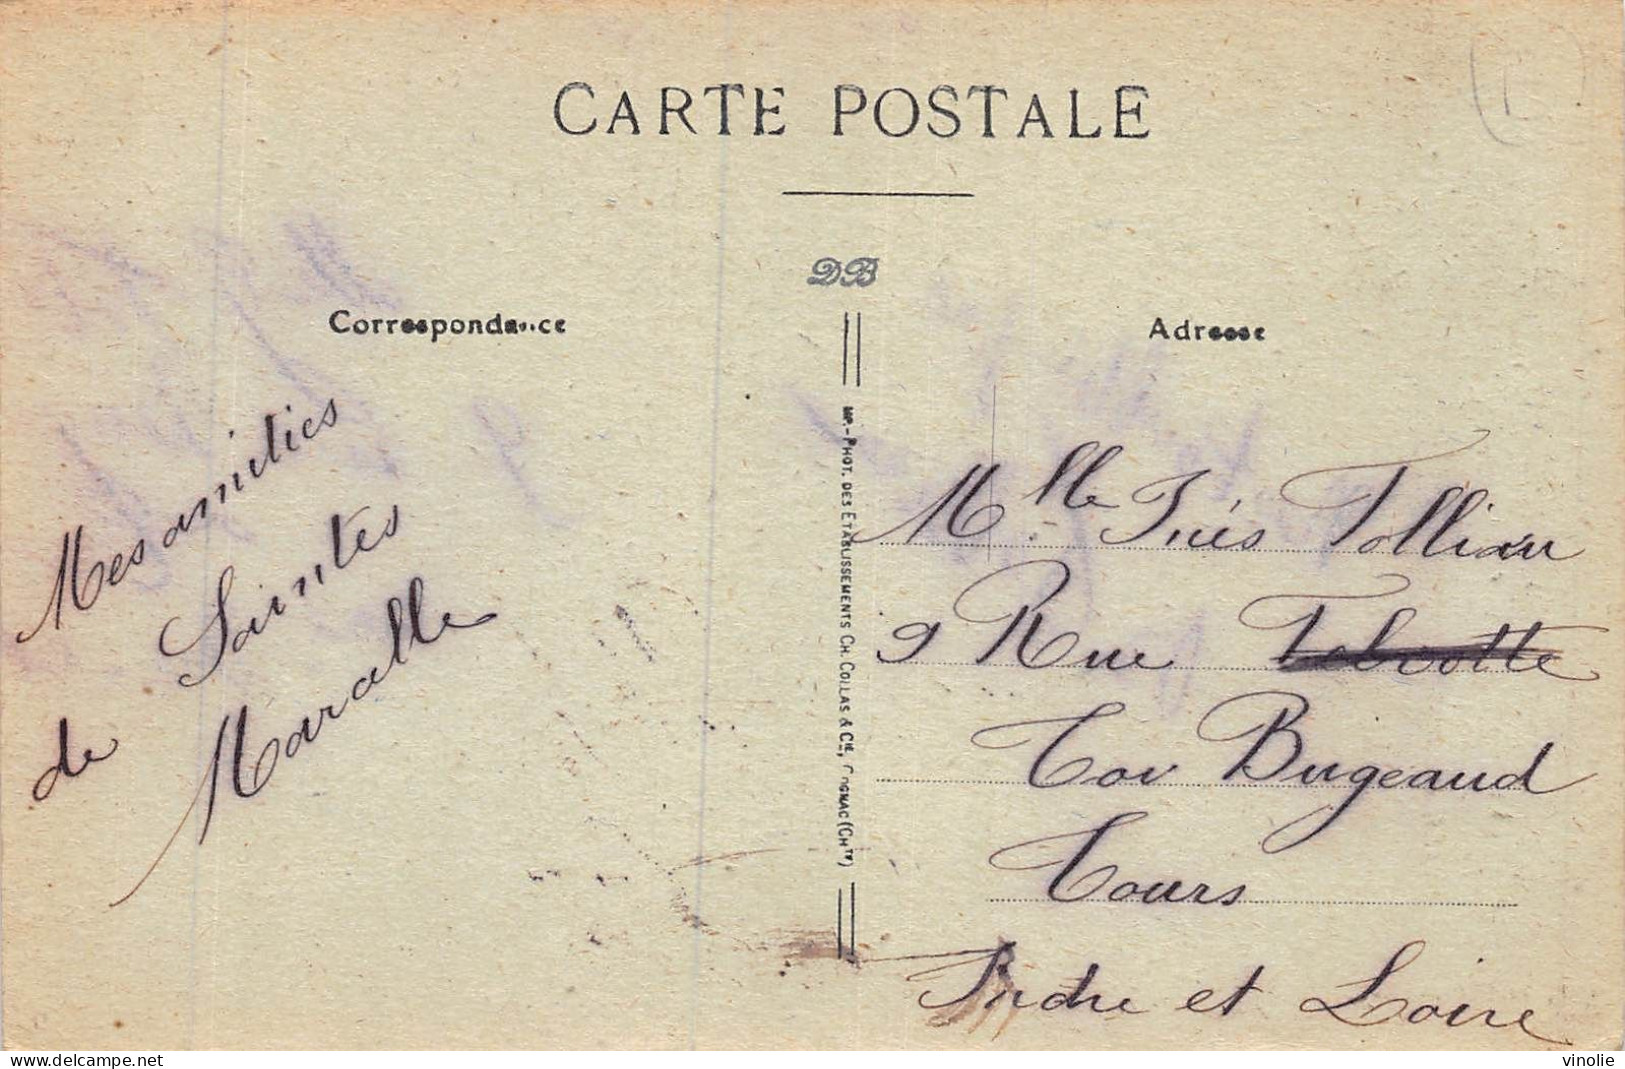 CARTE POSTALE
DB
Correspondance
Mes amities
de Saintes
Maralle
IMP.-PHOT. DES ETABLISSEMENTS CH. COLLAS & CIE, COGNAC (CHTE)
Adresse
Mlle Inés Tollian
9 Rue
Cov Bugeaud
Tours
Indre et Loire
delcampe.net
vinolie